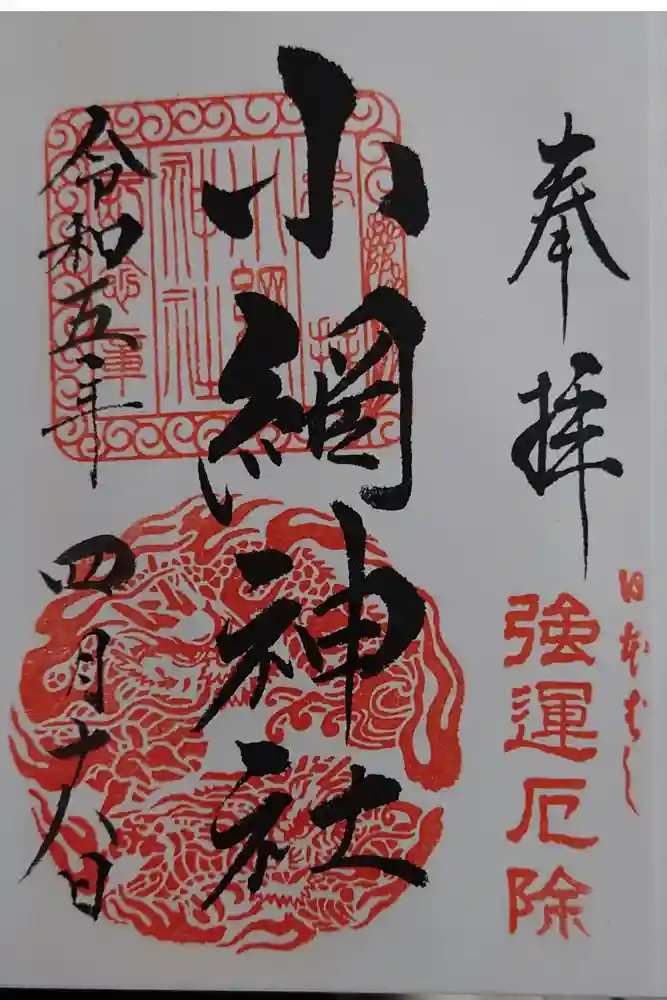 奉拝
日本ばし
強運厄除
小網神社
令和五年
四月十八日
小網
神社
記念章